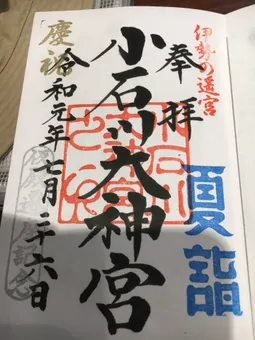 伊勢の遥宮
奉拝
夏詣
小石川大神宮
慶祝
令和元年七月二六日